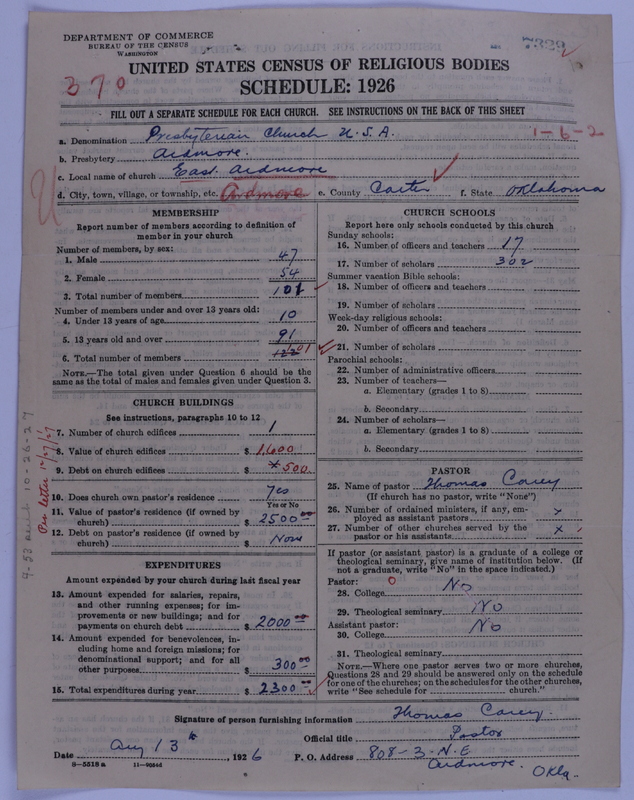 DEPARTMENT OF COMMERCE
BUREAU OF THE CENSUS
WASHINGTON
7329
370
UNITED STATES CENSUS OF RELIGIOUS BODIES
SCHEDULE: 1926
FILL OUT A SEPARATE SCHEDULE FOR EACH CHURCH. SEE INSTRUCTIONS ON THE BACK OF THIS SHEET
1-6-2
a. Denomination Presbyterian Church U.S.A.
b. Presbytery Ardmore.
c. Local name of church East Ardmore
d. City, town, village, or township, etc. Ardmore e. County Carter f. State Oklahoma
MEMBERSHIP
Report number of members according to definition of
member in your church
Number of members, by sex:
1. Male 47
2. Female 54
3. Total number of members 101
Number of members under and over 13 years old:
4. Under 13 years of age 10
5. 13 years old and over 91
6. Total number of members 101
NOTE.—The total given under Question 6 should be the
same as the total of males and females given under Question 3.
CHURCH BUILDINGS
See instructions, paragraphs 10 to 12
7. Number of church edifices 1
8. Value of church edifices $ 1,600
9. Debt on church edifices $ 500
10. Does church own pastor's residence Yes
Yes or No
11. Value of pastor's residence (if owned by
church) $ 2500 00
12. Debt on pastor's residence (if owned by
church) $ None
EXPENDITURES
Amount expended by your church during last fiscal year
13. Amount expended for salaries, repairs,
and other running expenses; for im-
provements or new buildings; and for
payments on church debt $ 2000 00
14. Amount expended for benevolences, in-
cluding home and foreign missions; for
denominational support; and for all
other purposes $ 300 00
15. Total expenditures during year $ 2300 00
CHURCH SCHOOLS
Report here only schools conducted by this church
Sunday schools:
16. Number of officers and teachers 17
17. Number of scholars 302
Summer vacation Bible schools:
18. Number of officers and teachers
19. Number of scholars
Week-day religious schools:
20. Number of officers and teachers
21. Number of scholars
Parochial schools:
22. Number of administrative officers
23. Number of teachers—
a. Elementary (grades 1 to 8)
b. Secondary
24. Number of scholars—
a. Elementary (grades 1 to 8)
b. Secondary
PASTOR
25. Name of pastor Thomas Carey
(If church has no pastor, write "None")
26. Number of ordained ministers, if any, em-
ployed as assistant pastors x
27. Number of other churches served by the
pastor or his assistants x
If pastor (or assistant pastor) is a graduate of a college or
theological seminary, give name of institution below. (If
not a graduate, write "No" in the space indicated.)
Pastor: 0
28. College No
29. Theological seminary No
Assistant pastor:
30. College No
31. Theological seminary
NOTE.—Where one pastor serves two or more churches,
Questions 28 and 29 should be answered only on the schedule
for one of the churches; on the schedules for the other churches,
write "See schedule for church."
Signature of person furnishing information Thomas Carey.
Official title Pastor
Date Aug 13th, 1926 P. O. Address 808-3-N.E
Ardmore. Okla.
8-5518 a 11-9054d
Per letter 10/27/27